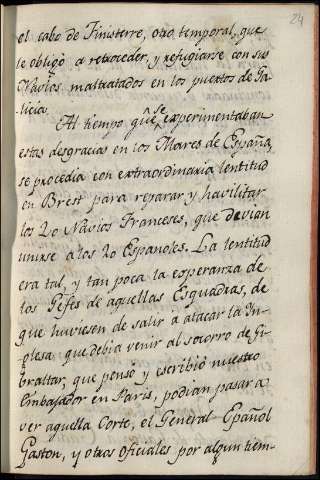 24
el cabo de Finisterre, otro temporal, que
le obligó a retroceder, y refugiarse con sus
Navios maltratados en los puertos de Ga-
licia.
Al tiempo q̃ se experimentavan
estas desgracias en los Mares de España,
se procedia con extraordinaria lentitud
en Brest para reparar y havilitar
los 20 Navios Franceses, que devian
unirse a los 20 Españoles. La lentitud
era tal, y tan poca la esperanza de
los Gefes de aquellas Esquadras, de
que huviesen de salir á atacar la In-
glesa, que debia venir al socorro de Gi-
braltar, que pensó y escribió nuestro
Embajador en Paris, podian pasar a
ver aquella Corte, el General Español
Gaston, y otros oficiales por algun tiem-